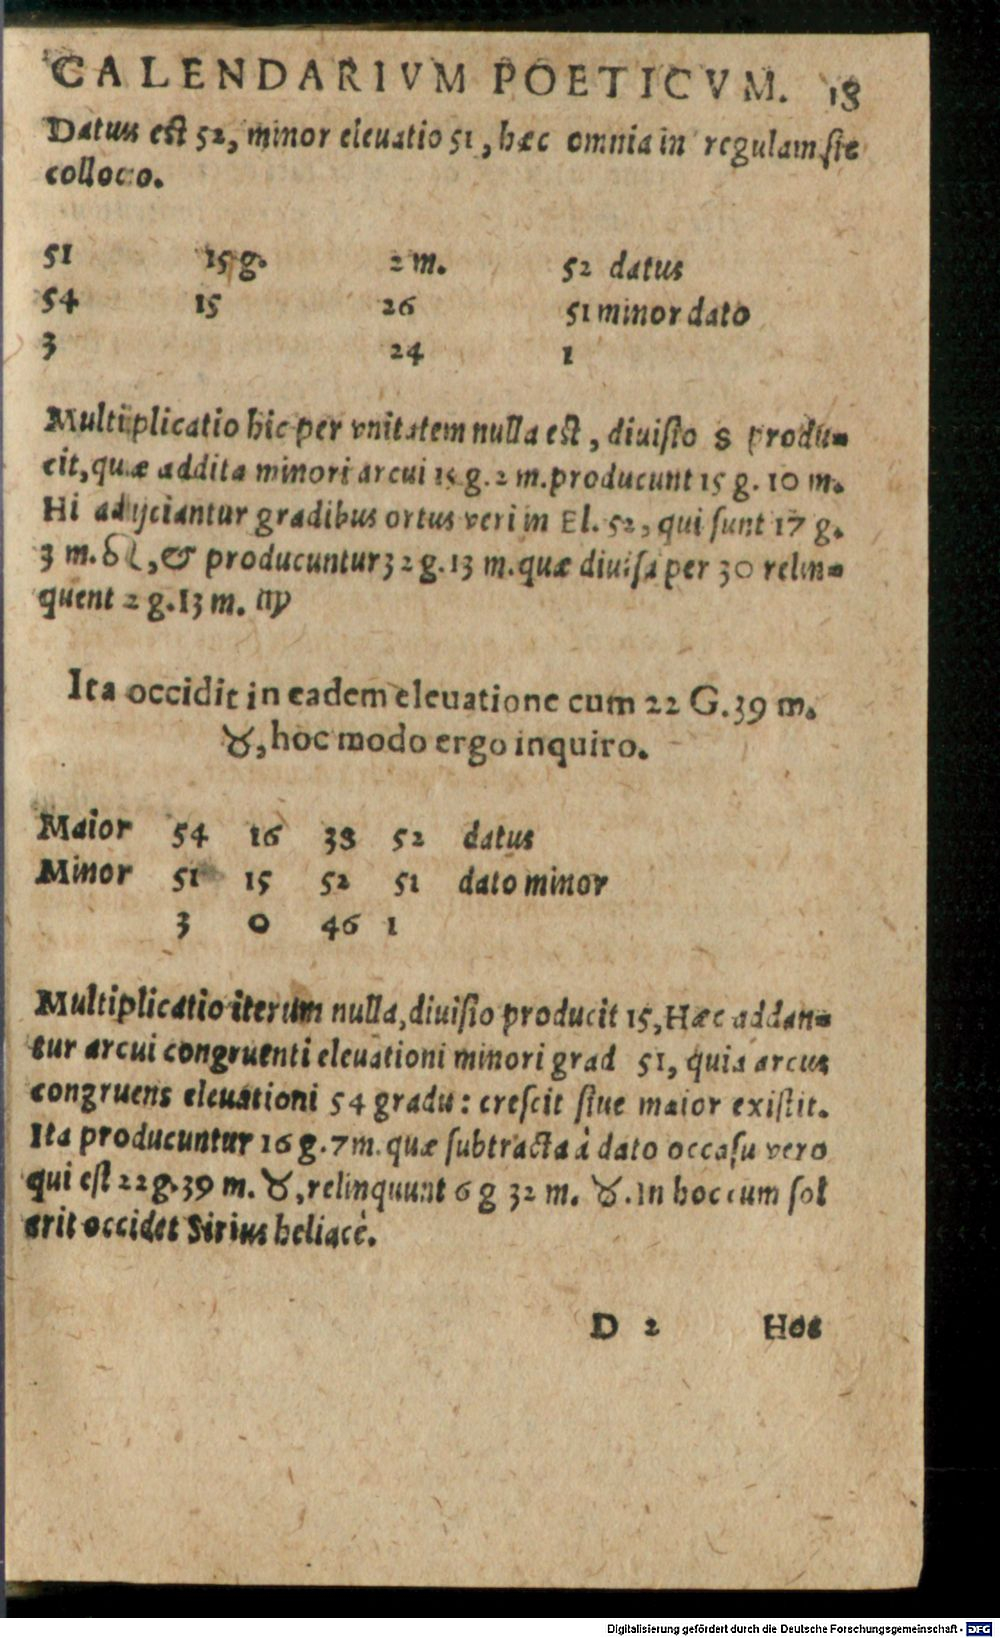 CALENDARIVM POETICVM. 18
Datus est 52, minor eleuatio 51, hæc omnia in regulam sic
colloco.
51 15 g. 2 m. 52 datus
54 15 26 51 minor dato
3 24 1
Multiplicatio hic per vnitatem nulla est, diuisio 8 produ-
cit, quæ addita minori arcui 15 g. 2 m. producunt 15 g. 10 m.
Hi adijciantur gradibus ortus veri in El. 52, qui sunt 17 g.
3 m. ♌, & producuntur 32 g. 13 m. quæ diuisa per 30 relin-
quent 2 g. 13 m. ♍
Ita occidit in eadem eleuatione cum 22 G. 39 m.
♉, hoc modo ergo inquiro.
Maior 54 16 38 52 datus
Minor 51 15 52 51 dato minor
3 0 46 1
Multiplicatio iterum nulla, diuisio producit 15, Hæc addan-
tur arcui congruenti eleuationi minori grad 51, quia arcus
congruens eleuationi 54 gradu: crescit siue maior existit.
Ita producuntur 16 g. 7 m. quæ subtracta à dato occasu vero
qui est 22 g. 39 m. ♉, relinquunt 6 g 32 m. ♉. In hoc cum sol
erit occidet Sirius heliacè.
D 2 Hos
Digitalisierung gefördert durch die Deutsche Forschungsgemeinschaft - DFG